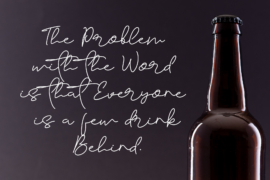 The Problem
with the Word
is that Everyone
is a few drink
Behind.